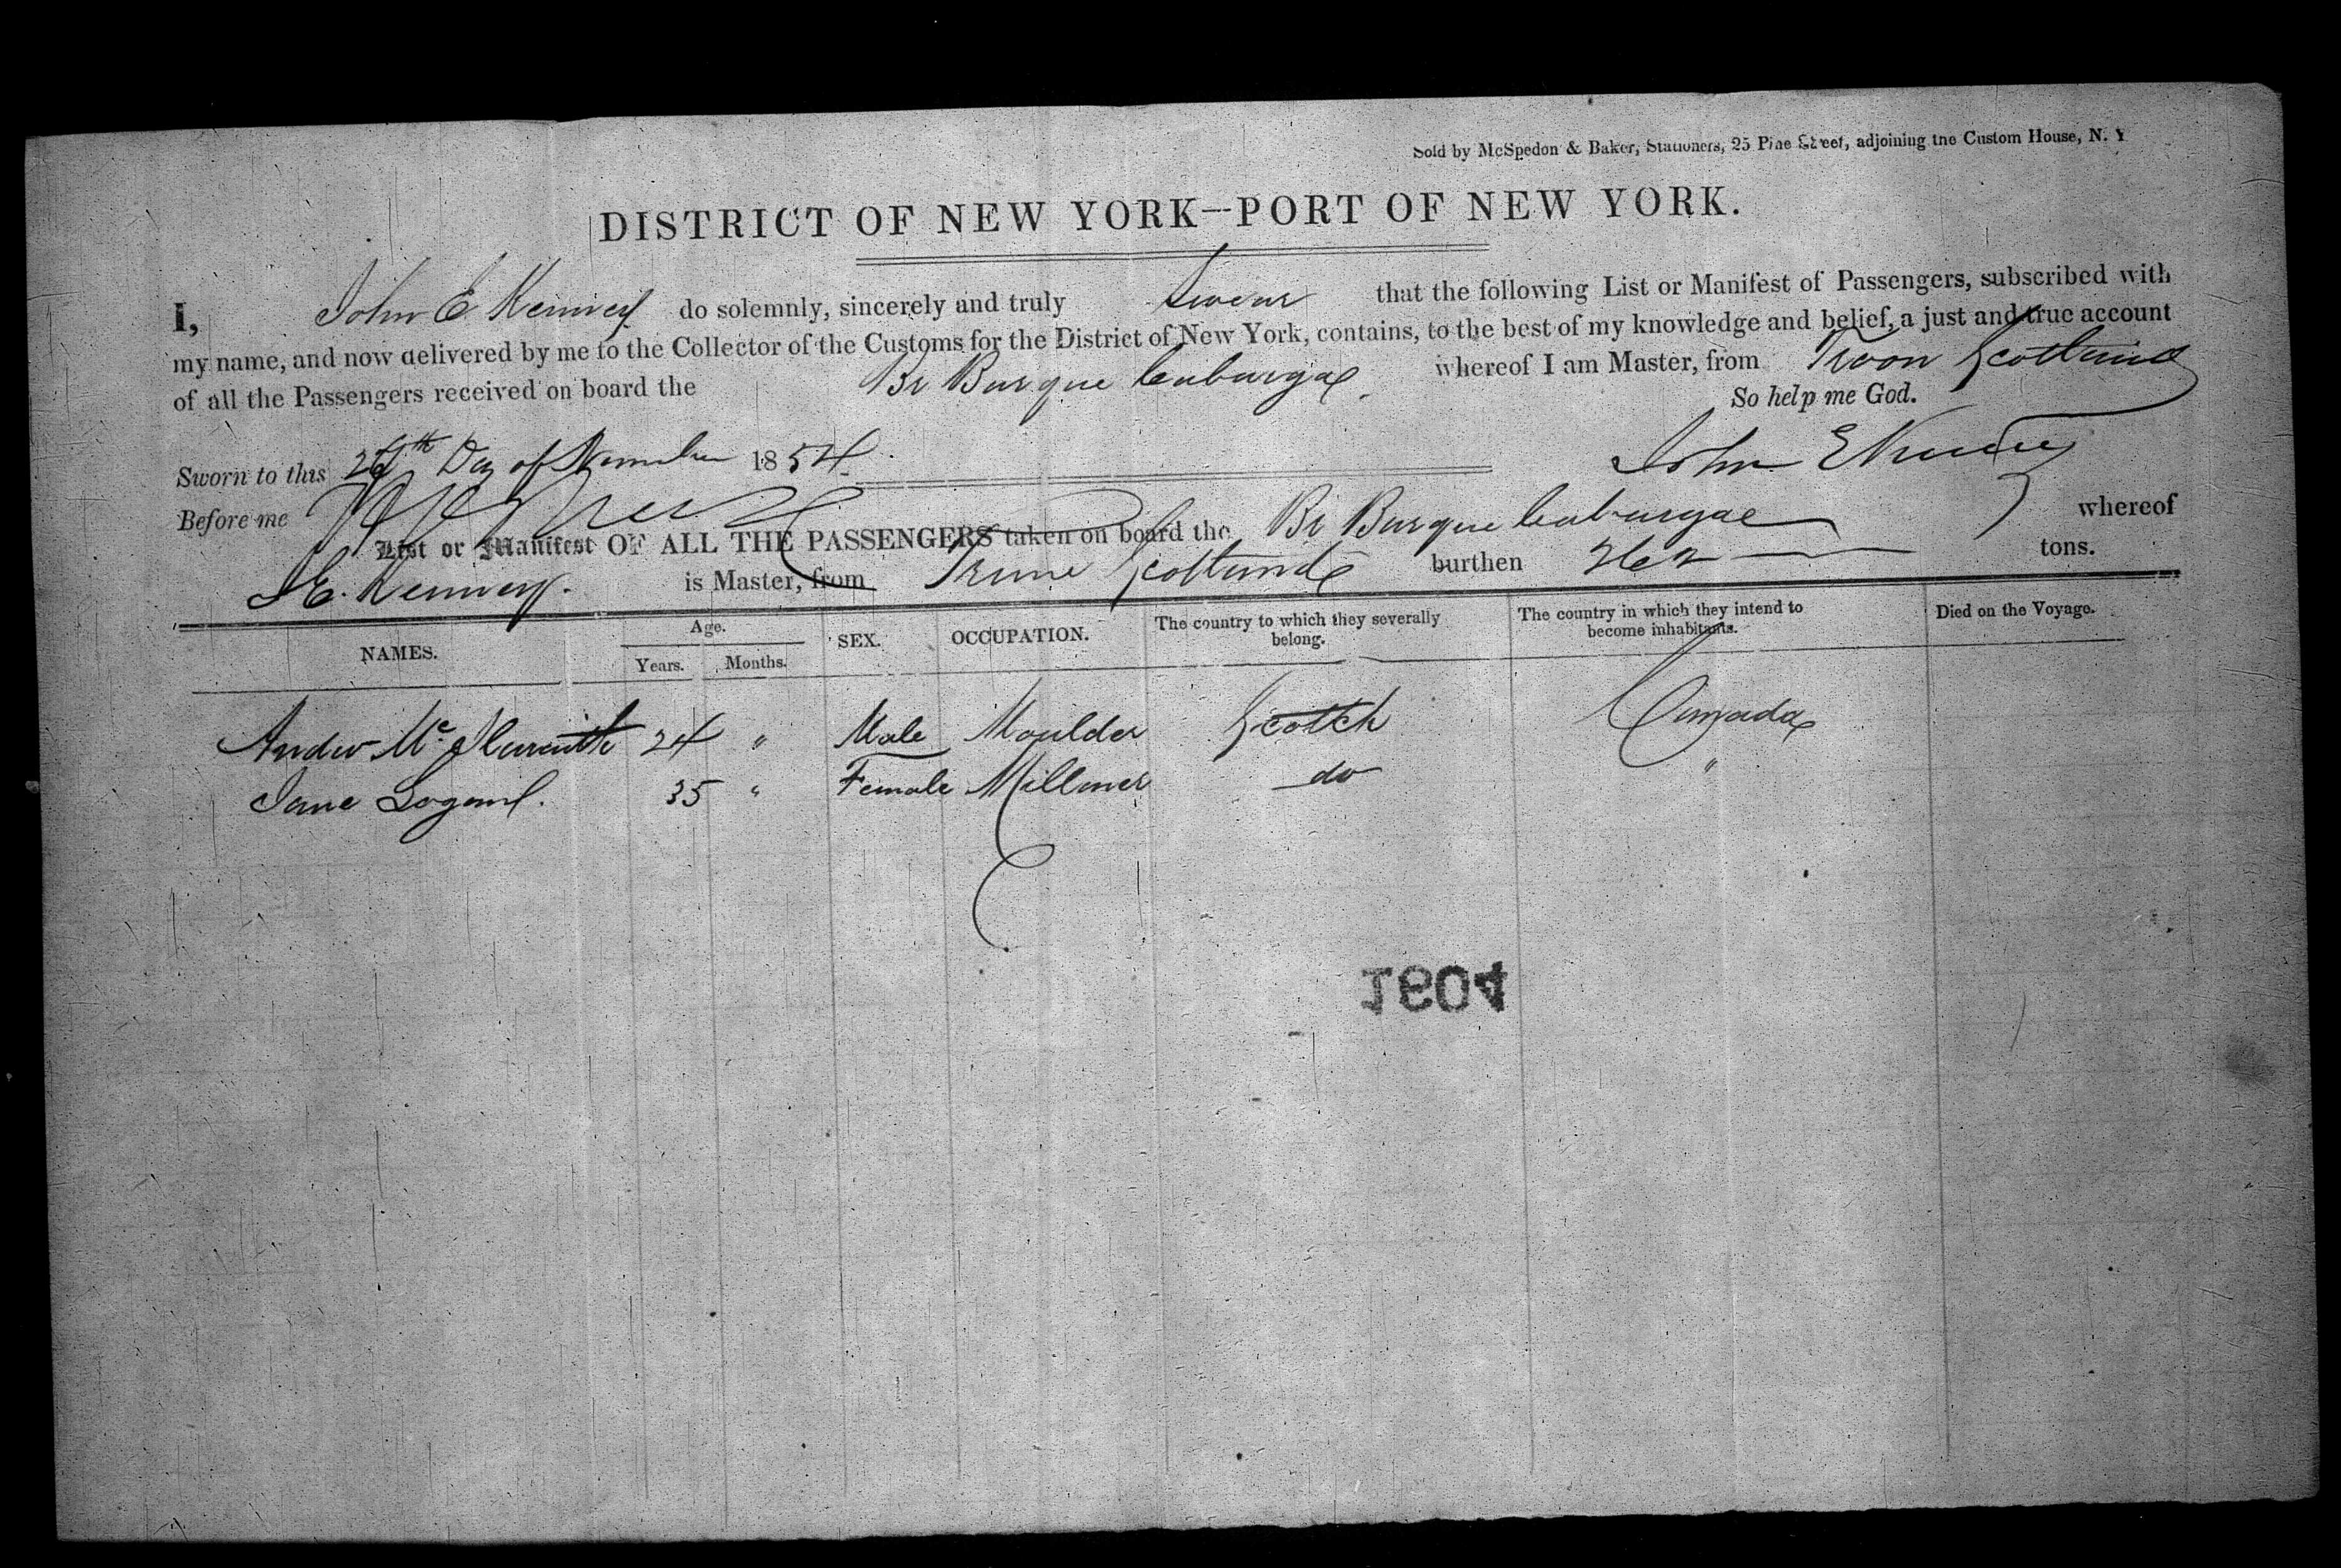 Sold by McSpedon & Baker, Stationers, 25 Pine Street, adjoining the Custom House, N. Y
DISTRICT OF NEW YORK—PORT OF NEW YORK.
I, John E Kenney do solemnly, sincerely and truly Swear that the following List or Manifest of Passengers, subscribed with
my name, and now delivered by me to the Collector of the Customs for the District of New York, contains, to the best of my knowledge and belief, a just and true account
of all the Passengers received on board the Br Barque whereof I am Master, from Troon Scotland
So help me God.
Sworn to this 26th Day of November 1854 John E Kenney
Before me
List or Manifest OF ALL THE PASSENGERS taken on board the Br Barque whereof
J E. Kenney. is Master, from Scotland burthen tons.
NAMES. Age. Years. Months. SEX. OCCUPATION. The country to which they severally belong. The country in which they intend to become inhabitants. Died on the Voyage.
Andrew Mc 24 " Male Moulder Scotch Canada
Jane Logan. 35 " Female Milliner do "
1804